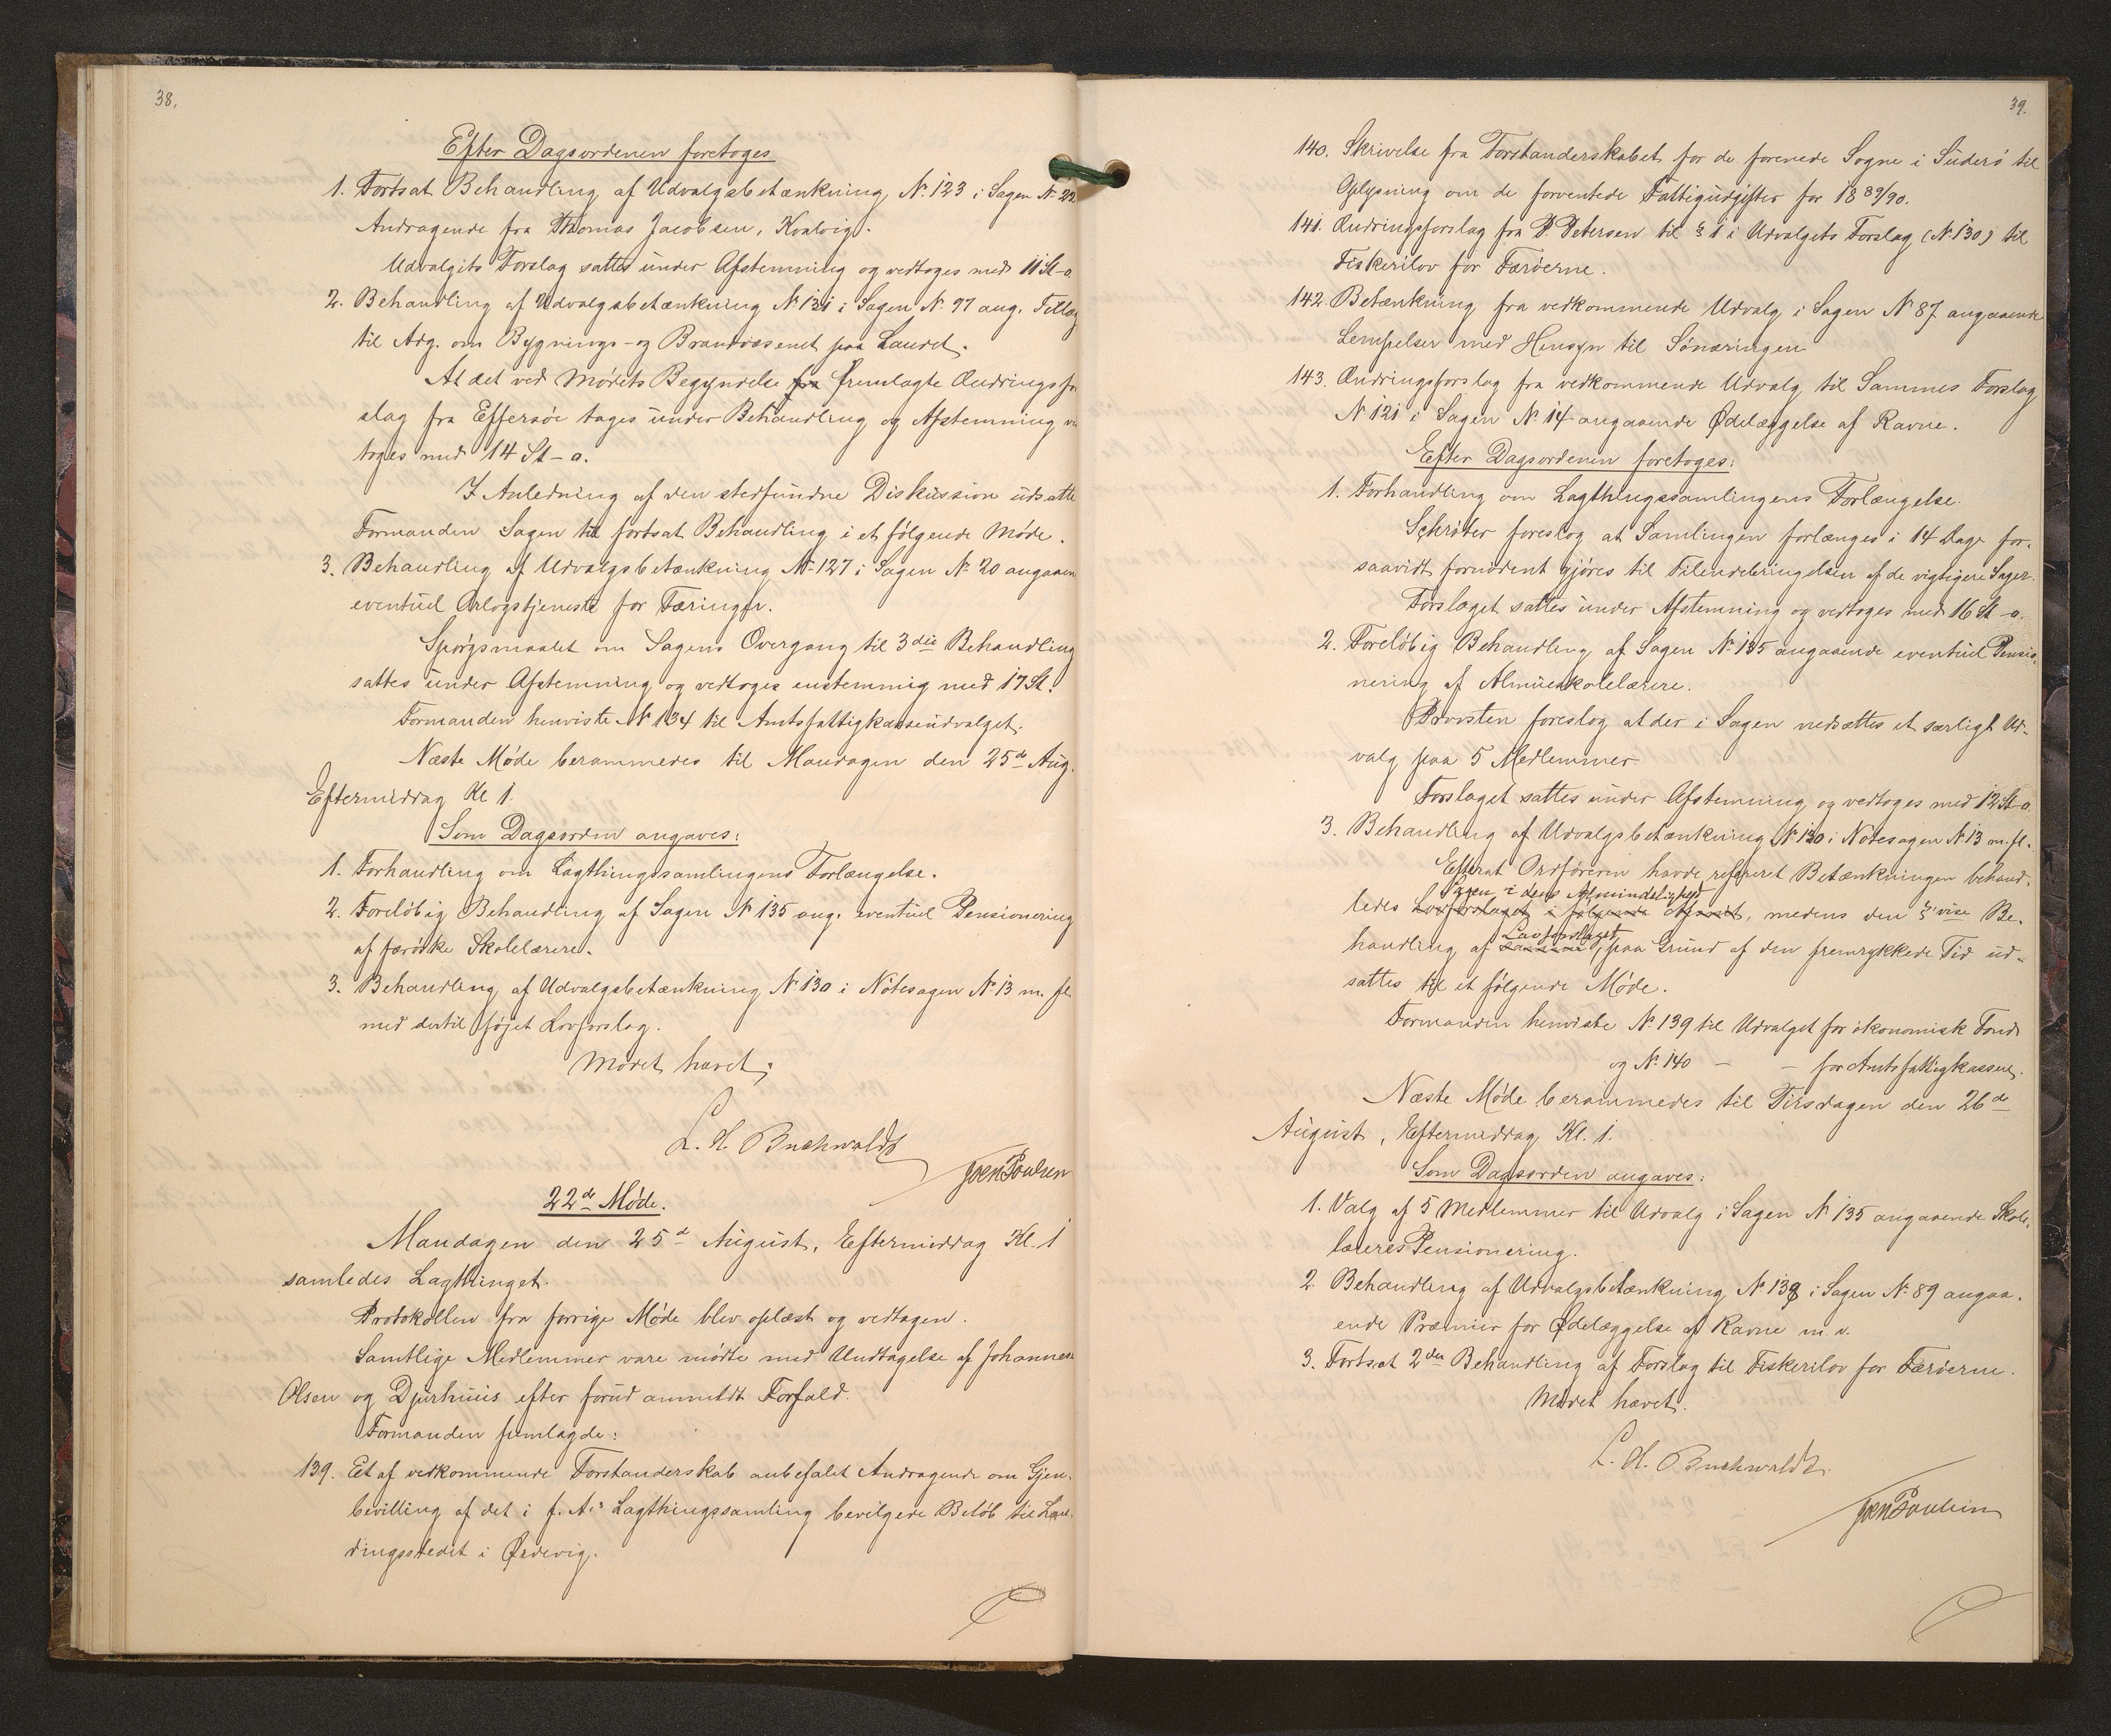 38.
Efter Dagsordenen foretoges
1. Fortsat Behandling af Udvalgsbetænkning No 123 i Sagen No 22
Andragende fra Thomas Jacobsen, Kvalvig.
Udvalgets Forslag sattes under Afstemning og vedtoges med 11 St-o
2. Behandling af Udvalgsbetænkning No 131 i Sagen No 97 ang. Tillæg
til Adg. om Bygnings- og Brandvæsenet paa Landet.
At det ved Mødets Begyndelse fra fremlagte Ændringsfor
slag fra Effersöe tages under Behandling og Afstemning ved
toges med 14 St-o.
I Anledning af den stedfundne Diskussion udsatte
Formanden Sagen til fortsat Behandling i et følgende Møde.
3. Behandling af Udvalgsbetænkning No 127 i Sagen No 20 angaaen
eventuel Orlogstjeneste for Færinger.
Spørgsmaalet om Sagens Overgang til 3die Behandling
sattes under Afstemning og vedtoges enstemmig med 17 St.
Formanden henviste No 134 til Amtsfattigkasseudvalget.
Næste Møde berammedes til Mandagen den 25de Aug.
Eftermiddag Kl 1.
Som Dagsorden angaves:
1. Forhandling om Lagthingssamlingens Forlængelse.
2. Foreløbig Behandling af Sagen No 135 ang. eventuel Pensionering
af færøske Skolelærere.
3. Behandling af Udvalgsbetænkning No 130 i Notesagen No 13 m. fl.
med dertil føjet Lovforslag.
Mødet hævet.
L. H. Buchwaldt
Joen Poulsen
22de Møde.
Mandagen den 25de August, Eftermiddag Kl. 1
samledes Lagthinget.
Protokollen fra forrige Møde blev oplæst og vedtagen.
Samtlige Medlemmer vare mødte med Undtagelse af Johannes
Olsen og Djurhuus efter forud anmeldt Forfald.
Formanden fremlagde:
139. Et af vedkommende Forstanderskab anbefalet Andragende om Gjen-
bevilling af det i f. A.s Lagthingssamling bevilgede Beløb til Lan-
dingsstedet i Ørdevig.
39.
140. Skrivelse fra Forstanderskabet for de forenede Sogne i Suderø til
Oplysning om de forventede Fattigudgifter for 1889/90.
141. Ændringsforslag fra P. Petersen til § 1 i Udvalgets Forslag (No 130) til
Fiskerilov for Færøerne.
142. Betænkning fra vedkommende Udvalg i Sagen No 87 angaaende
Lempelser med Hensyn til Sönæringen
143. Ændringsforslag fra vedkommende Udvalg til Sammes Forslag
No 121 i Sagen No 14 angaaende Ødelæggelse af Ravne.
Efter Dagsordenen foretoges:
1. Forhandling om Lagthingssamlingens Forlængelse.
Schrøter foreslog at Samlingen forlænges i 14 Dage for-
saavidt fornødent gjøres til Tilendebringelsen af de vigtigere Sager.
Forslaget sattes under Afstemning og vedtoges med 16 St-o.
2. Foreløbig Behandling af Sagen No 135 angaaende eventuel Pensio-
nering af Almueskolelærere.
Provsten foreslog at der i Sagen nedsættes et særligt Ud-
valg paa 5 Medlemmer.
Forslaget sattes under Afstemning og vedtoges med 12 St-o
3. Behandling af Udvalgsbetænkning No 130 i Notesagen No 13 m. fl.
Efterat Ordføreren havde refereret Betænkningen behand-
Sagen i dens Almindelighed
ledes Lovforslaget i følgende Afsnit, medens den §'vise Be-
Lovforslaget
handling af samme, paa Grund af den fremrykkede Tid ud-
sattes til et følgende Møde.
Formanden henviste No 139 til Udvalget for økonomisk Fond
og No 140 – – for Amtsfattigkassen.
Næste Møde berammedes til Tirsdagen den 26de
August, Eftermiddag Kl. 1.
Som Dagsorden angaves:
1. Valg af 5 Medlemmer til Udvalg i Sagen No 135 angaaende Skole-
læreres Pensionering.
2 Behandling af Udvalgsbetænkning No 138 i Sagen No 89 angaa-
ende Præmier for Ødelæggelse af Ravne m. v.
3. Fortsat 2den Behandling af Forslag til Fiskerilov for Færøerne.
Mødet hævet.
L. H. Buchwaldt.
Joen Poulsen